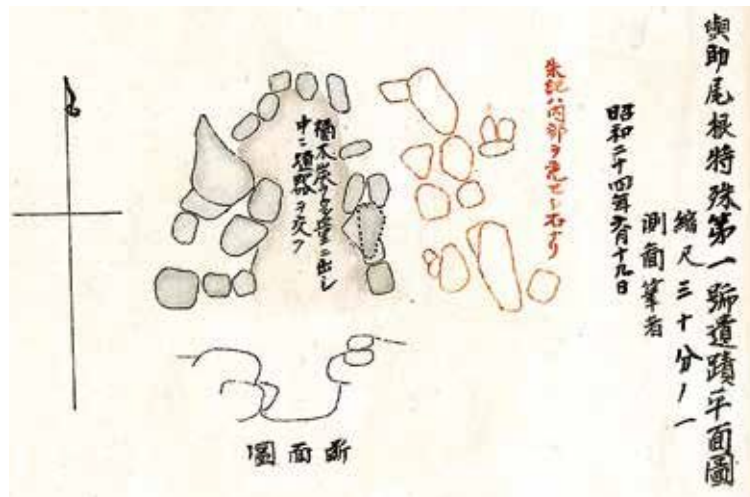 與助尾根特殊第一號遺蹟平面圖
縮尺三十分ノ一
測圖筆者
昭和二十四年六月十九日
朱記ハ内部ヲ充セシ石ナリ
木炭多量ニ出シ
中ニヲ交フ
斷面圖